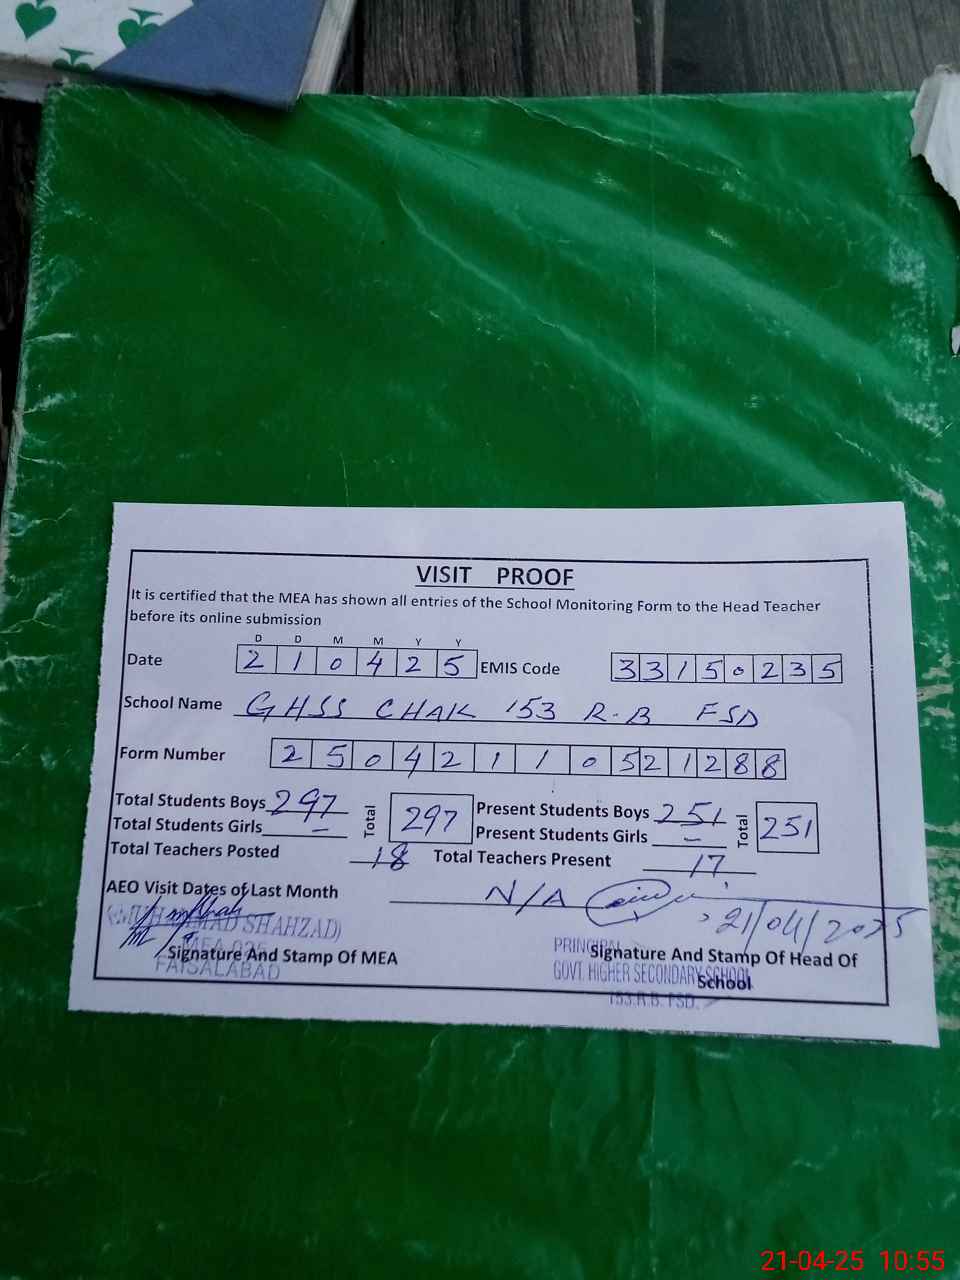 VISIT PROOF
It is certified that the MEA has shown all entries of the School Monitoring Form to the Head Teacher
before its online submission
D D M M Y Y
Date 2 1 0 4 2 5 EMIS Code 3 3 1 5 0 2 3 5
School Name GHSS CHAK 153 R.B FSD
Form Number 2 5 0 4 2 1 1 0 5 2 1 2 8 8
Total Students Boys 297 Total 297 Present Students Boys 251 Total 251
Total Students Girls – Present Students Girls –
Total Teachers Posted 18 Total Teachers Present 17
AEO Visit Dates of Last Month N/A
21/04/2025
(MUHAMMAD SHAHZAD)
MEA 025
FAISALABAD
Signature And Stamp Of MEA
PRINCIPAL
GOVT. HIGHER SECONDARY SCHOOL
153.R.B. FSD.
Signature And Stamp Of Head Of
School
21-04-25 10:55